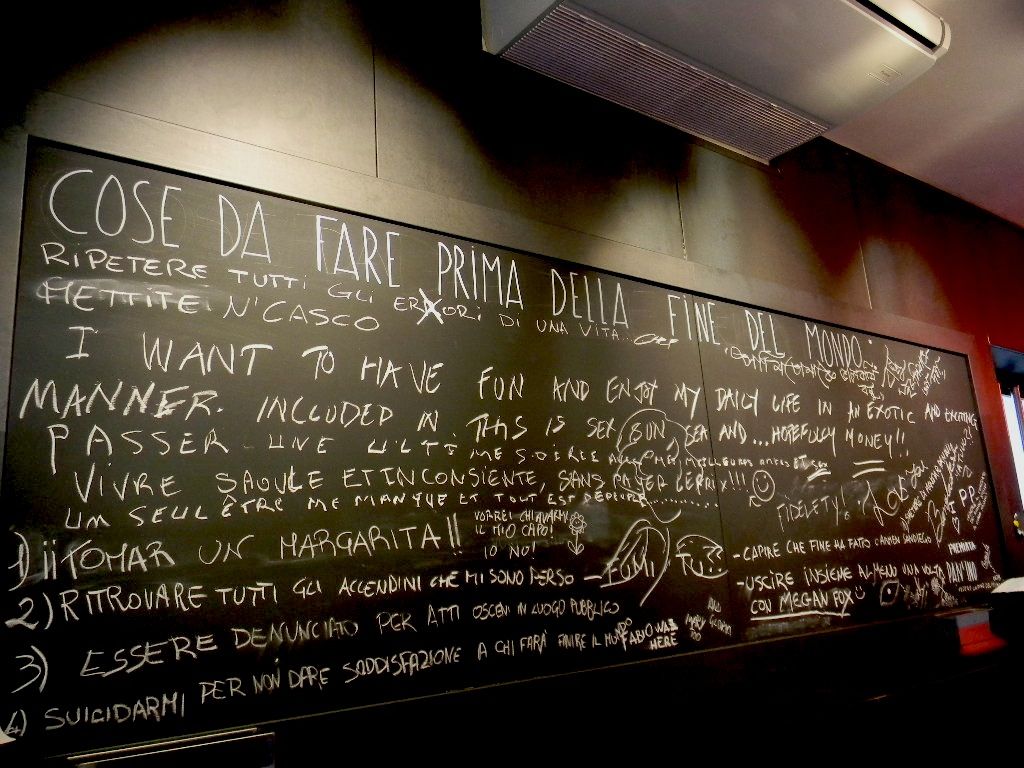 COSE DA FARE PRIMA DELLA FINE DEL MONDO:
RIPETERE TUTTI GLI ERRORI DI UNA VITA...
METTITE N'CASCO
I WANT TO HAVE FUN AND ENJOY MY DAILY LIFE IN AN EXOTIC AND EXCITING
MANNER. INCLUDED IN THIS IS SEX, SUN, SEA AND... HOPEFULLY MONEY!!
PASSER UNE ULTIME SOIRÉE AVEC MES MEILLEURES
VIVRE SAOULE ET INCONSIENTE, SANS PAYER LE PRIX!!!
UM SEUL ÊTRE ME MANQUE ET TOUT EST DEPEUPLE........
FIDELTY!
1) ¡¡TOMAR UN MARGARITA!!
VORREI CHIAVARMI
IL MIO CAPO!
IO NO!
2) RITROVARE TUTTI GLI ACCENDINI CHE MI SONO PERSO
- FUMI TU??
3) ESSERE DENUNCIATO PER ATTI OSCENI IN LUOGO PUBBLICO
4) SUICIDARMI PER NON DARE SODDISFAZIONE A CHI FARÀ FINIRE IL MONDO
FABIO WAS
HERE
- CAPIRE CHE FINE HA FATTO CARMEN SANDIEGO
- USCIRE INSIEME ALMENO UNA VOLTA
CON MEGAN FOX